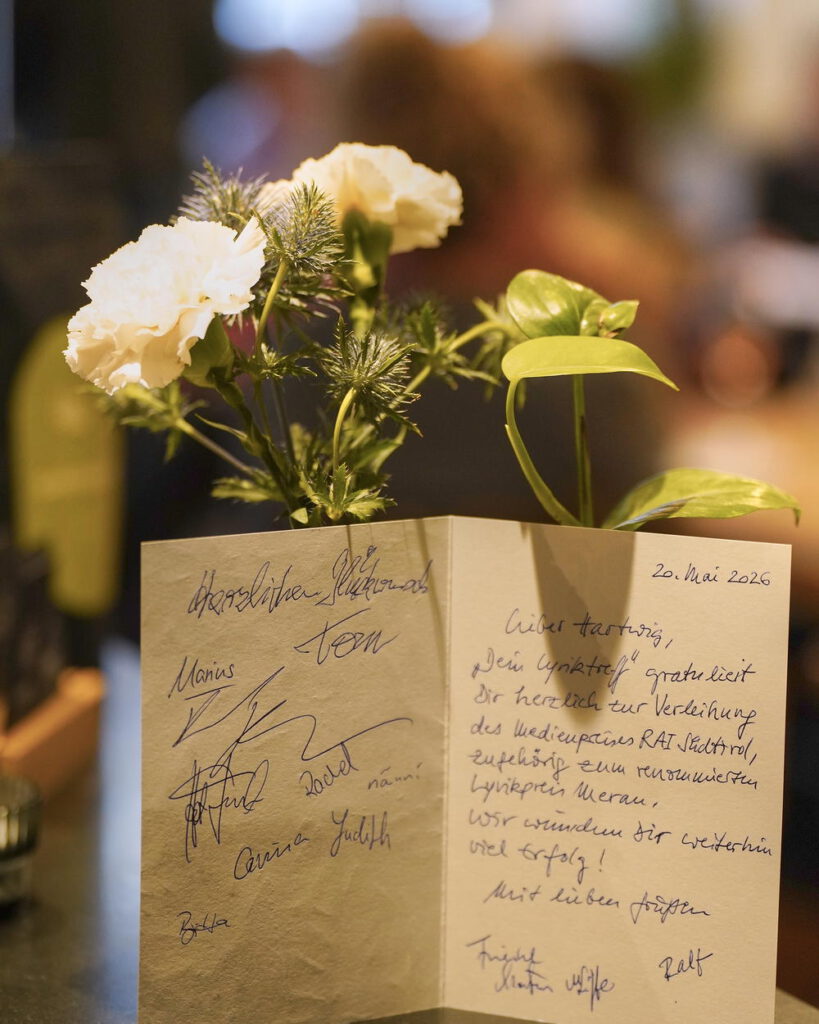 Herzlichen Glückwunsch
Tom
Marius
Rachel
nánni
Carina Judith
Britta
20. Mai 2026
Lieber Hartwig,
„Dein Lyriktreff“ gratuliert
Dir herzlich zur Verleihung
des Medienpreises RAI Südtirol,
zugehörig zum renommierten
Lyrikpreis Meran.
Wir wünschen Dir weiterhin
viel Erfolg!
Mit lieben Grüßen
Ralf